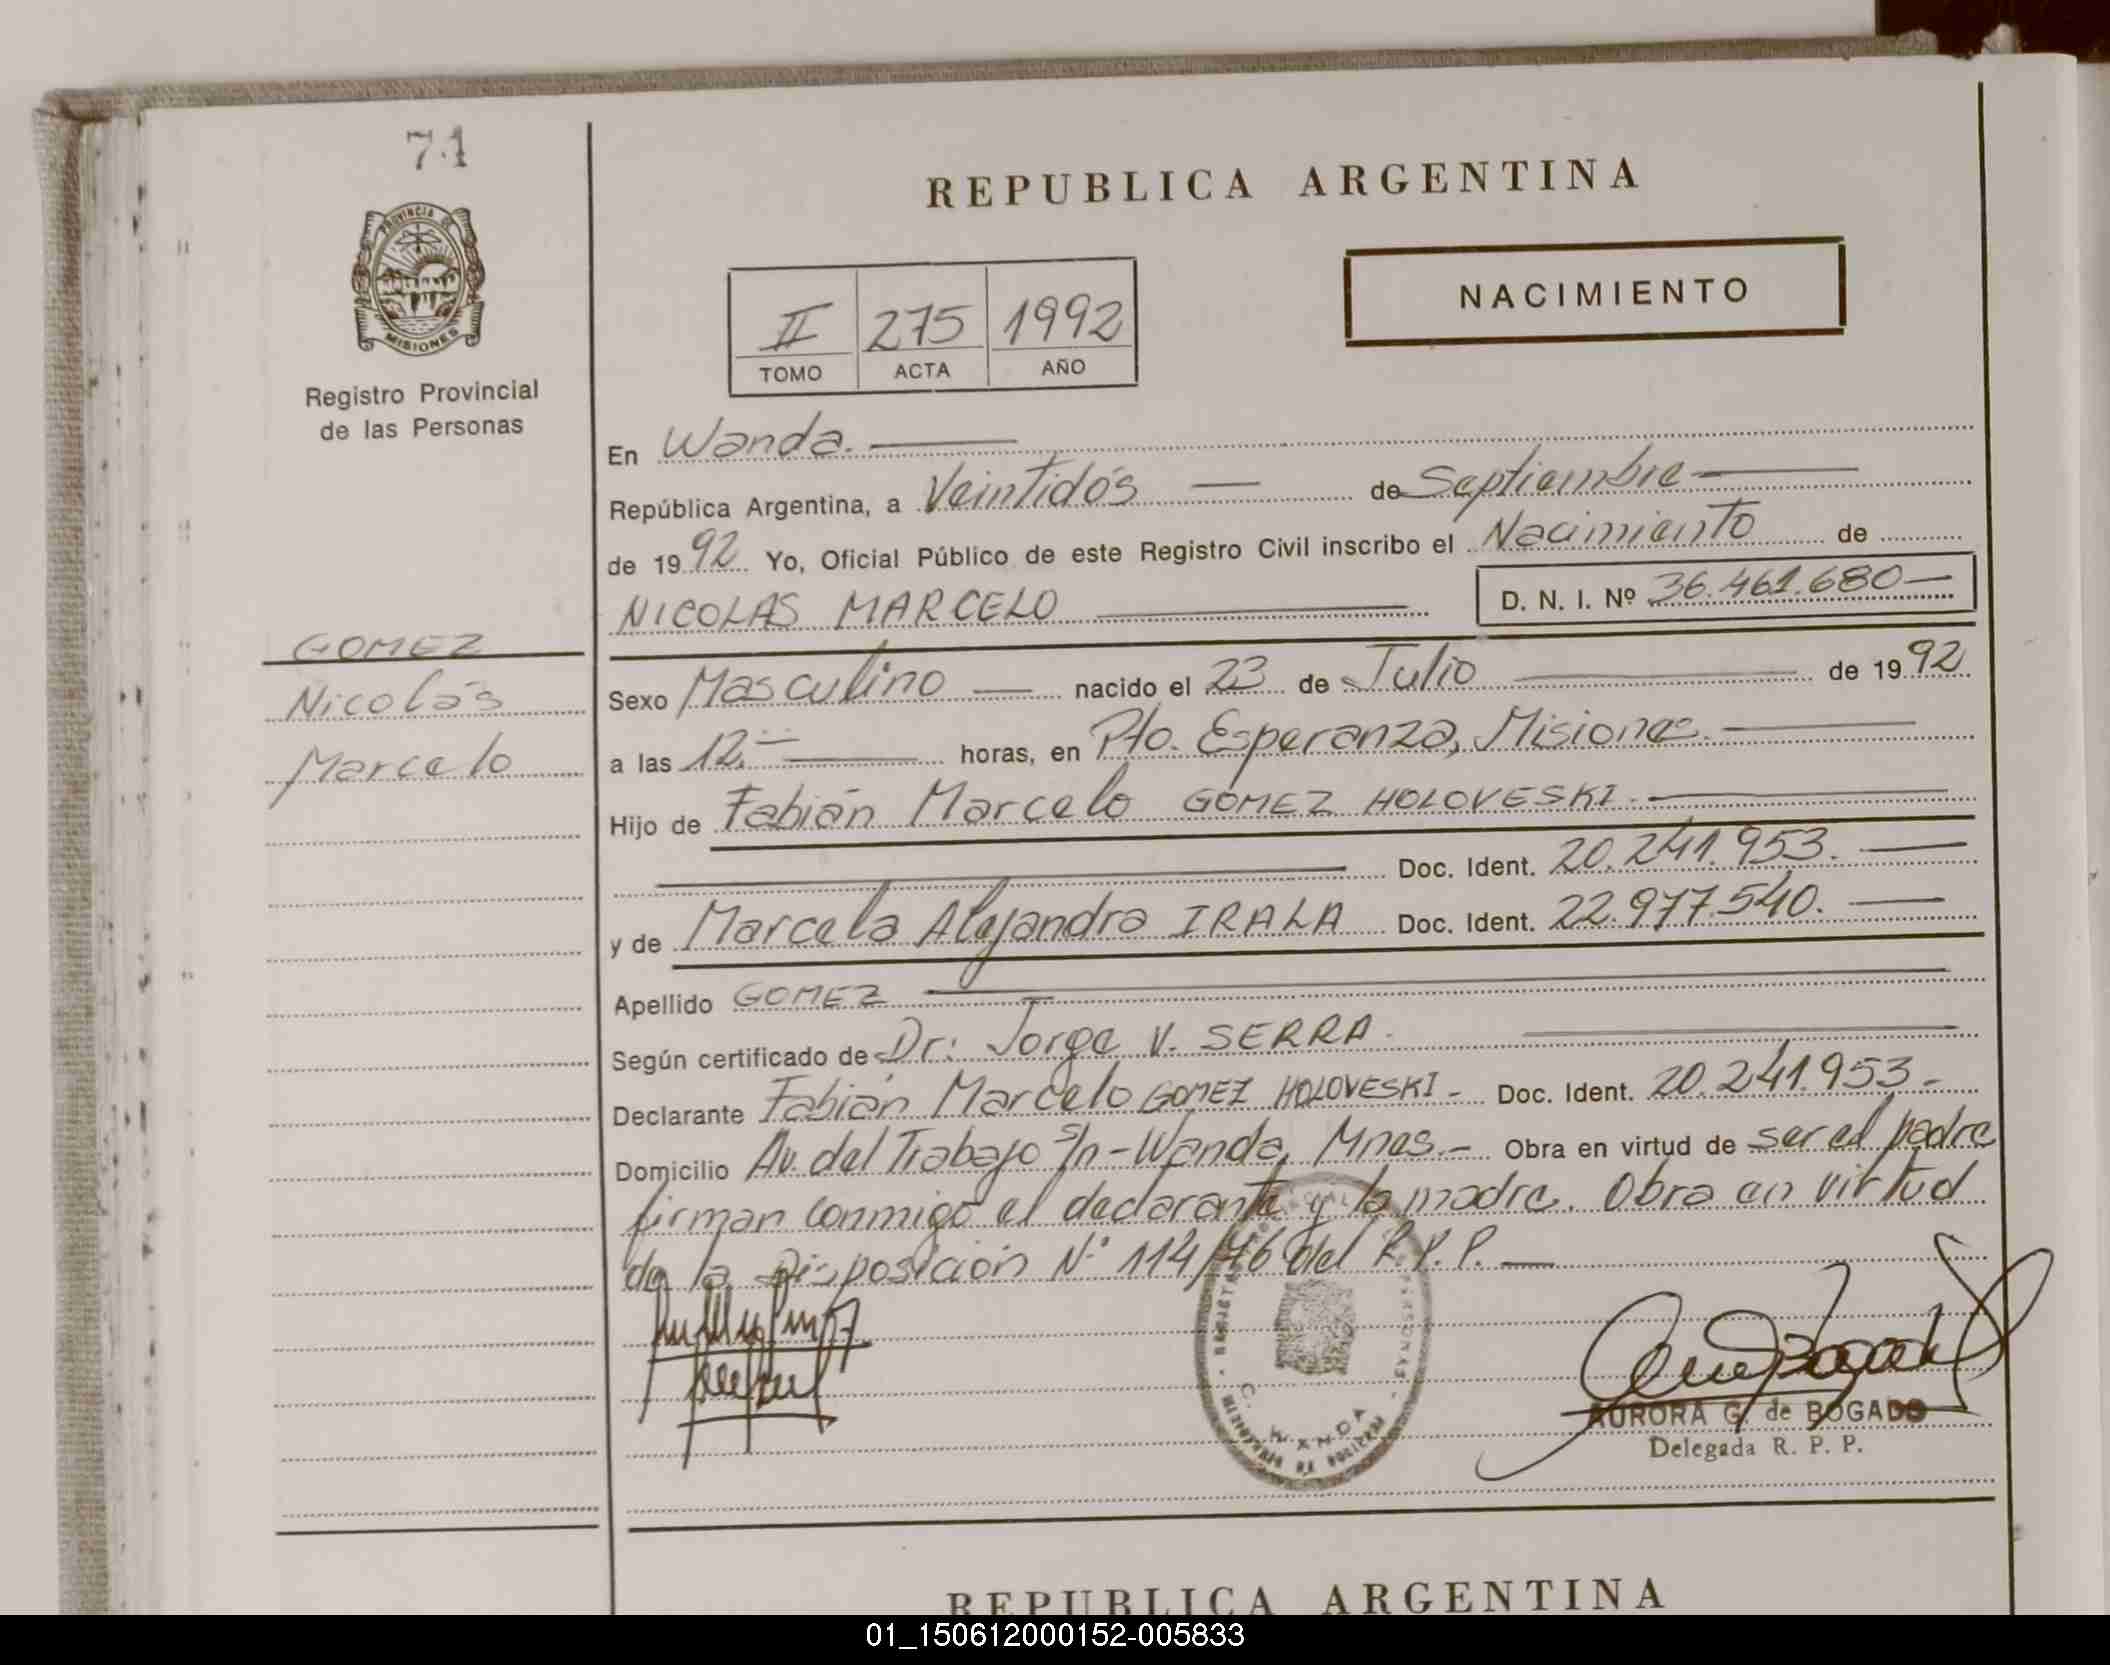 74
PROVINCIA DE
MISIONES
Registro Provincial
de las Personas
GOMEZ
Nicolás
Marcelo
REPUBLICA ARGENTINA
NACIMIENTO
II 275 1992
TOMO ACTA AÑO
En Wanda.
República Argentina, a Veintidós de Septiembre
de 1992 Yo, Oficial Público de este Registro Civil inscribo el Nacimiento de
NICOLAS MARCELO D. N. I. Nº 36.461.680
Sexo Masculino nacido el 23 de Julio de 1992
a las 12.- horas, en Pto. Esperanza, Misiones.
Hijo de Fabián Marcelo GOMEZ HOLOVESKI.
Doc. Ident. 20.241.953.
y de Marcela Alejandra IRALA Doc. Ident. 22.977.540.
Apellido GOMEZ
Según certificado de Dr. Jorge V. SERRA.
Declarante Fabián Marcelo GOMEZ HOLOVESKI - Doc. Ident. 20.241.953-
Domicilio Av. del Trabajo s/n - Wanda, Mnes.- Obra en virtud de ser el padre
firman conmigo el declarante y la madre. Obra en virtud
de la Disposición Nº 114/76 del R.P.P.
WANDA
AURORA G. de BOGADO
Delegada R. P. P.
REPUBLICA ARGENTINA
01_150612000152-005833